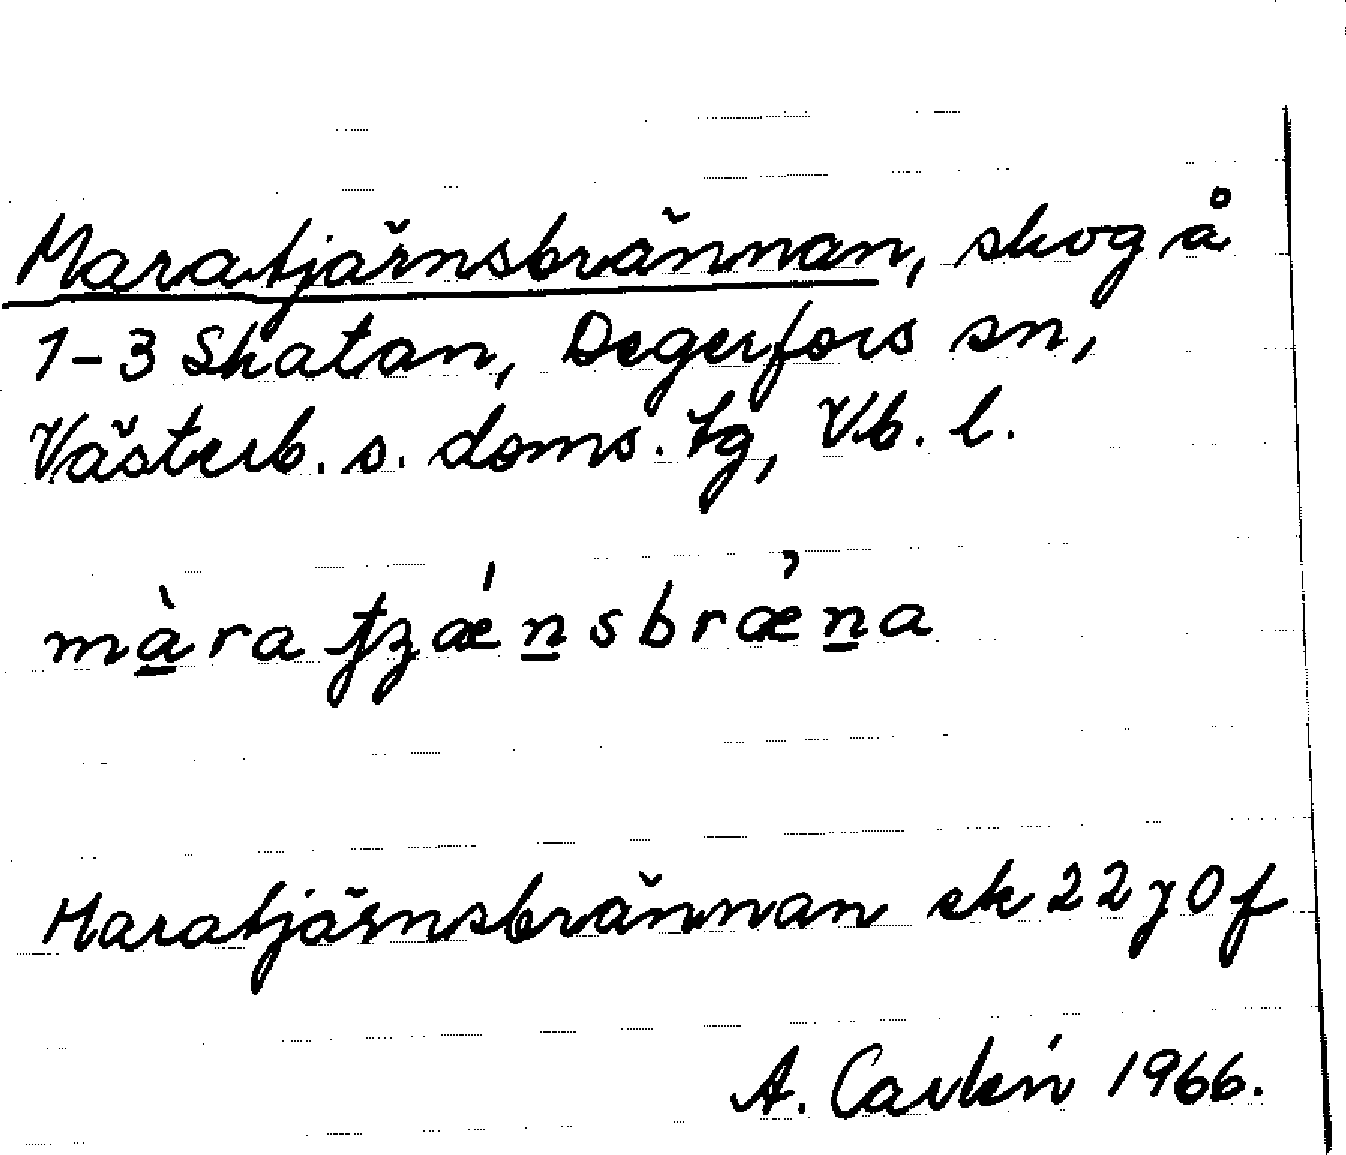 Maratjärnsbrännan, skog å
1-3 Skatan, Degerfors sn,
Västerb. s. doms. tg, Vb. l.
màratʒǽnsbræ̀na
Maratjärnsbrännan ek 22 J 0 f
A. Carlén 1966.